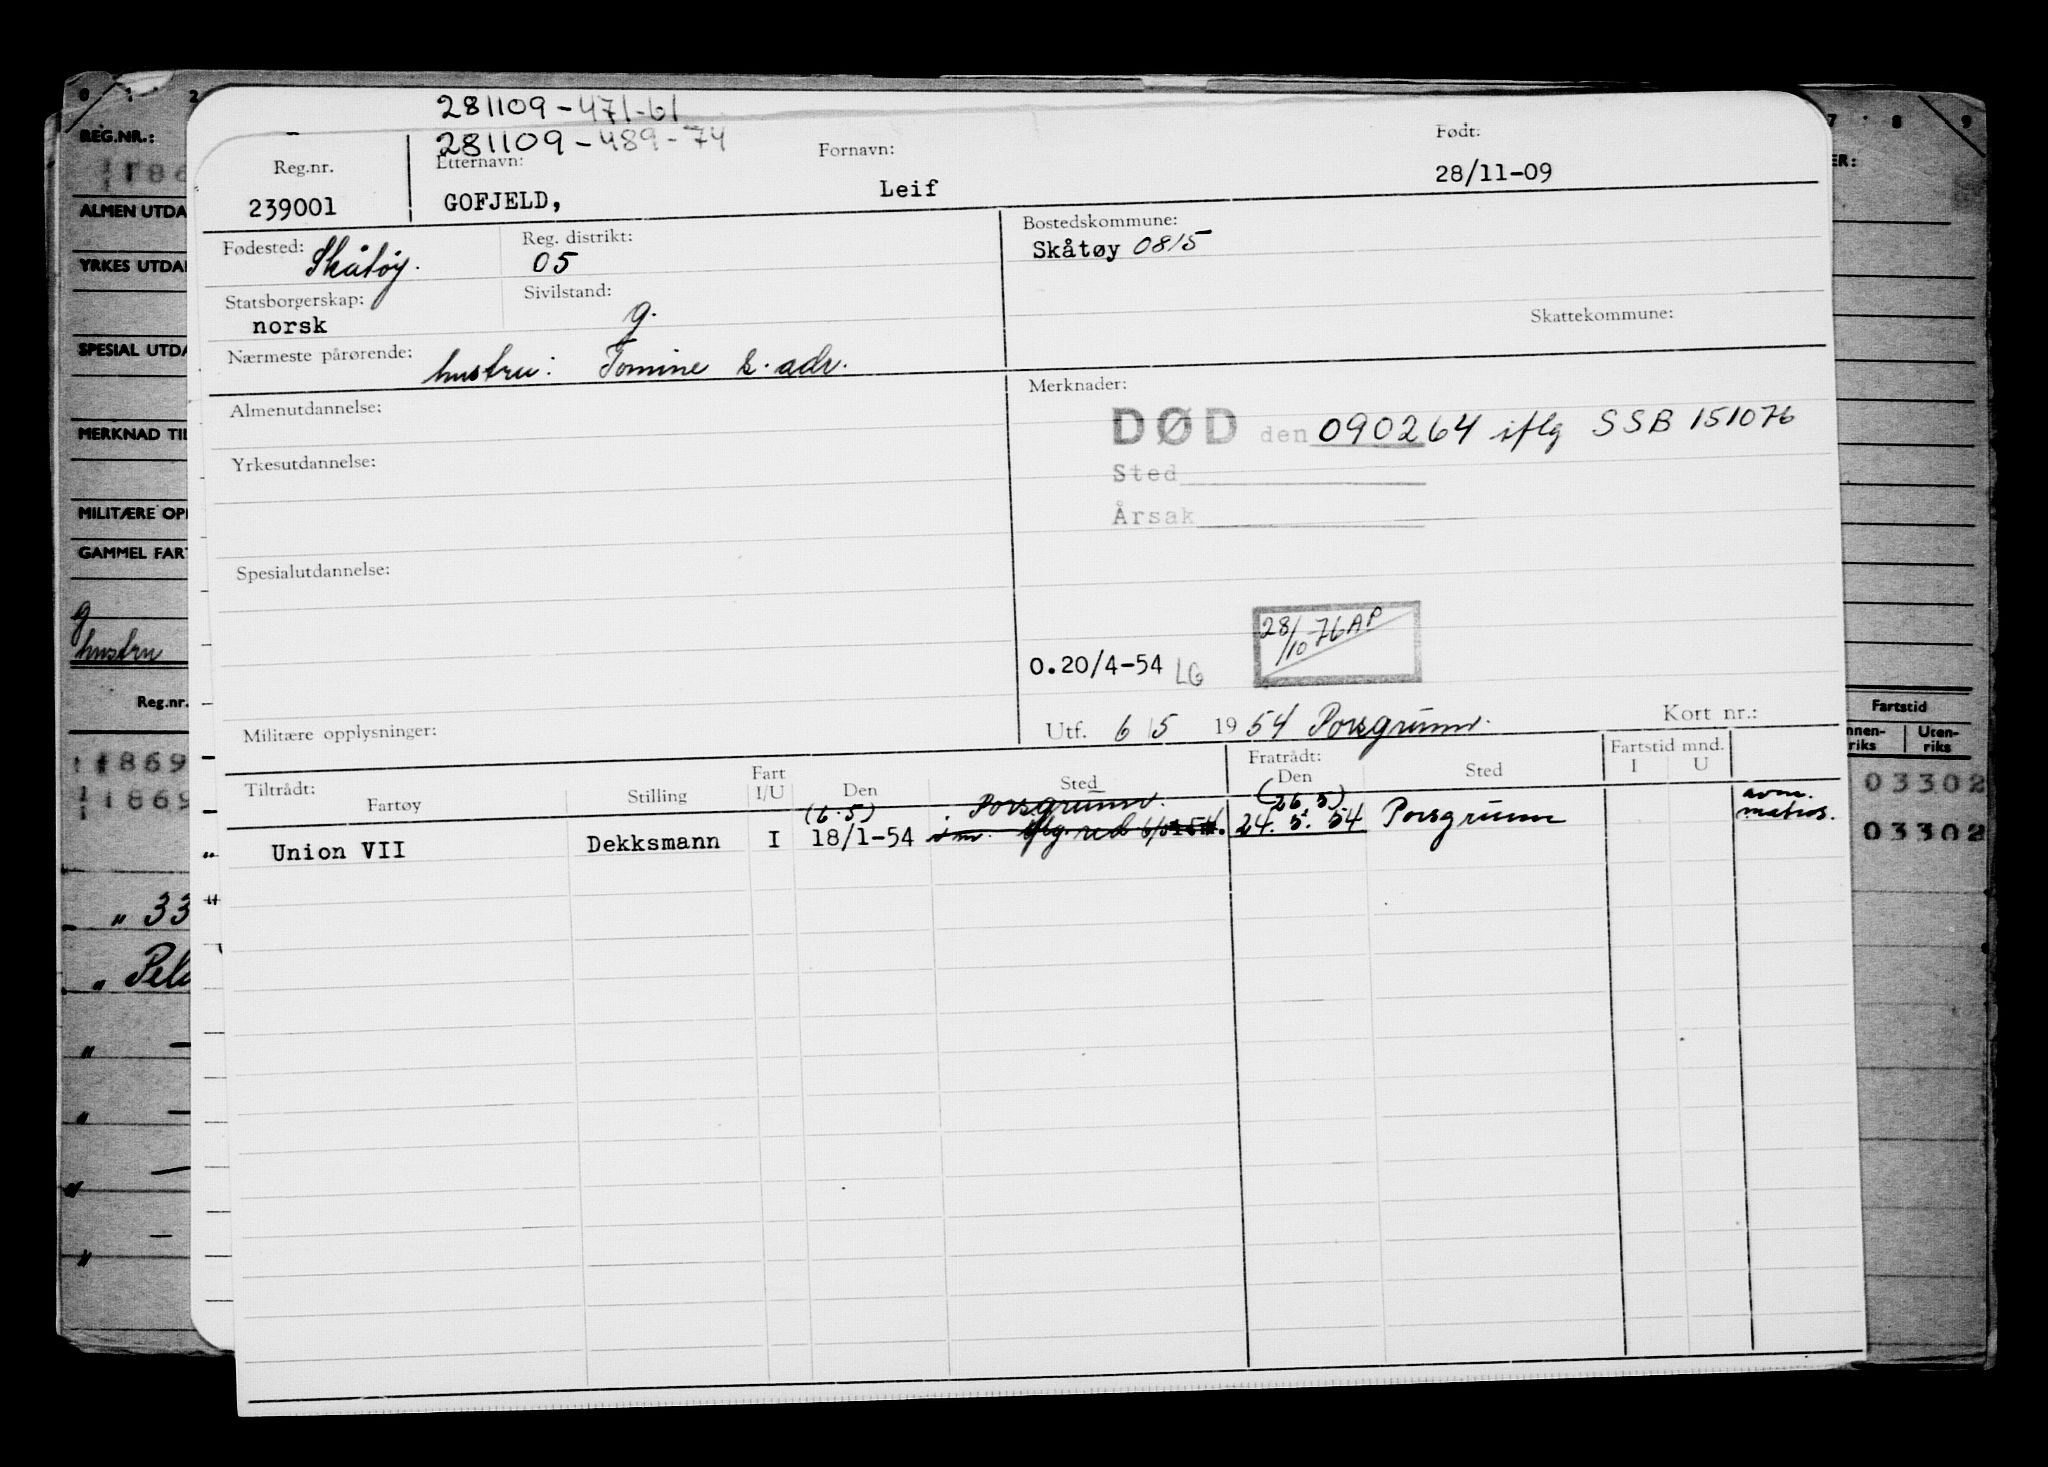 281109-471-61
281109-489-74
Reg.nr. Etternavn: Fornavn: Født:
239001 GOFJELD, Leif 28/11-09
Fødested: Skåtøy. Reg. distrikt: 05 Bostedskommune: Skåtøy 0815
Statsborgerskap: norsk Sivilstand: g. Skattekommune:
Nærmeste pårørende: hustru: Tomine s. adr.
Almenutdannelse: Merknader:
DØD den 090264 iflg SSB 151076
Yrkesutdannelse: Sted
Årsak
Spesialutdannelse:
28/10 76 AP
0.20/4-54 LG
Militære opplysninger: Utf. 6/5 1954 Porsgrunn. Kort nr.:
Tiltrådt: Fratrådt: Fartstid mnd.
Fartøy Stilling Fart I/U Den Sted Den Sted I U
(6.5) Porsgrunn. (26.5)
Union VII Dekksmann I 18/1-54 24.5.54 Porsgrunn matros.
0 1 2 7 8 9
REG.NR.:
ALMEN UTDA
YRKES UTDA
SPESIAL UTDA
MERKNAD TIL
MILITÆRE OP
GAMMEL FAR
g
hustru
Reg.nr. Fartstid
nnen-riks Uten-riks
1869 03302
1869 03302
" 33
" Pel